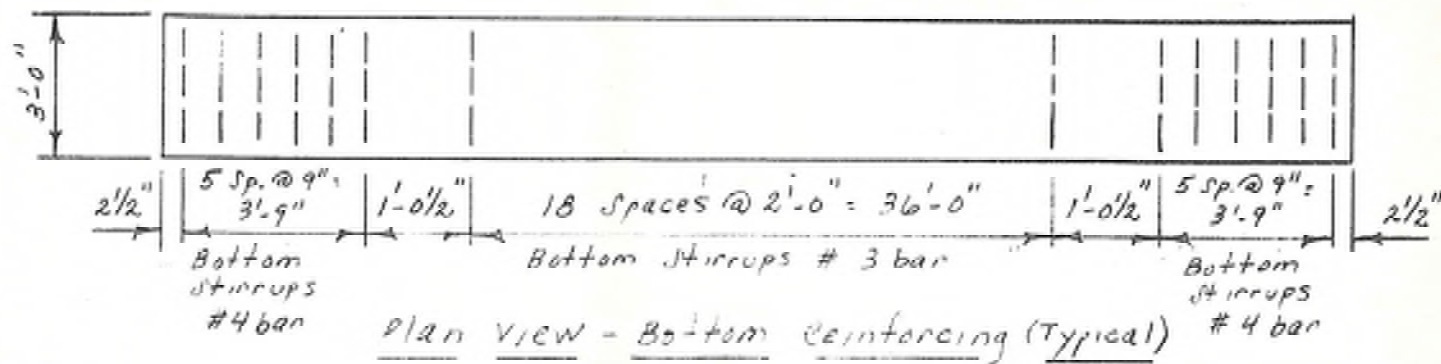 3'-0"
2½"
5 Sp. @ 9" =
3'-9"
1'-0½"
18 Spaces @ 2'-0" = 36'-0"
1'-0½"
5 Sp. @ 9" =
3'-9"
2½"
Bottom
Stirrups
#4 bar
Bottom Stirrups # 3 bar
Bottom
Stirrups
# 4 bar
Plan View - Bottom Reinforcing (Typical)